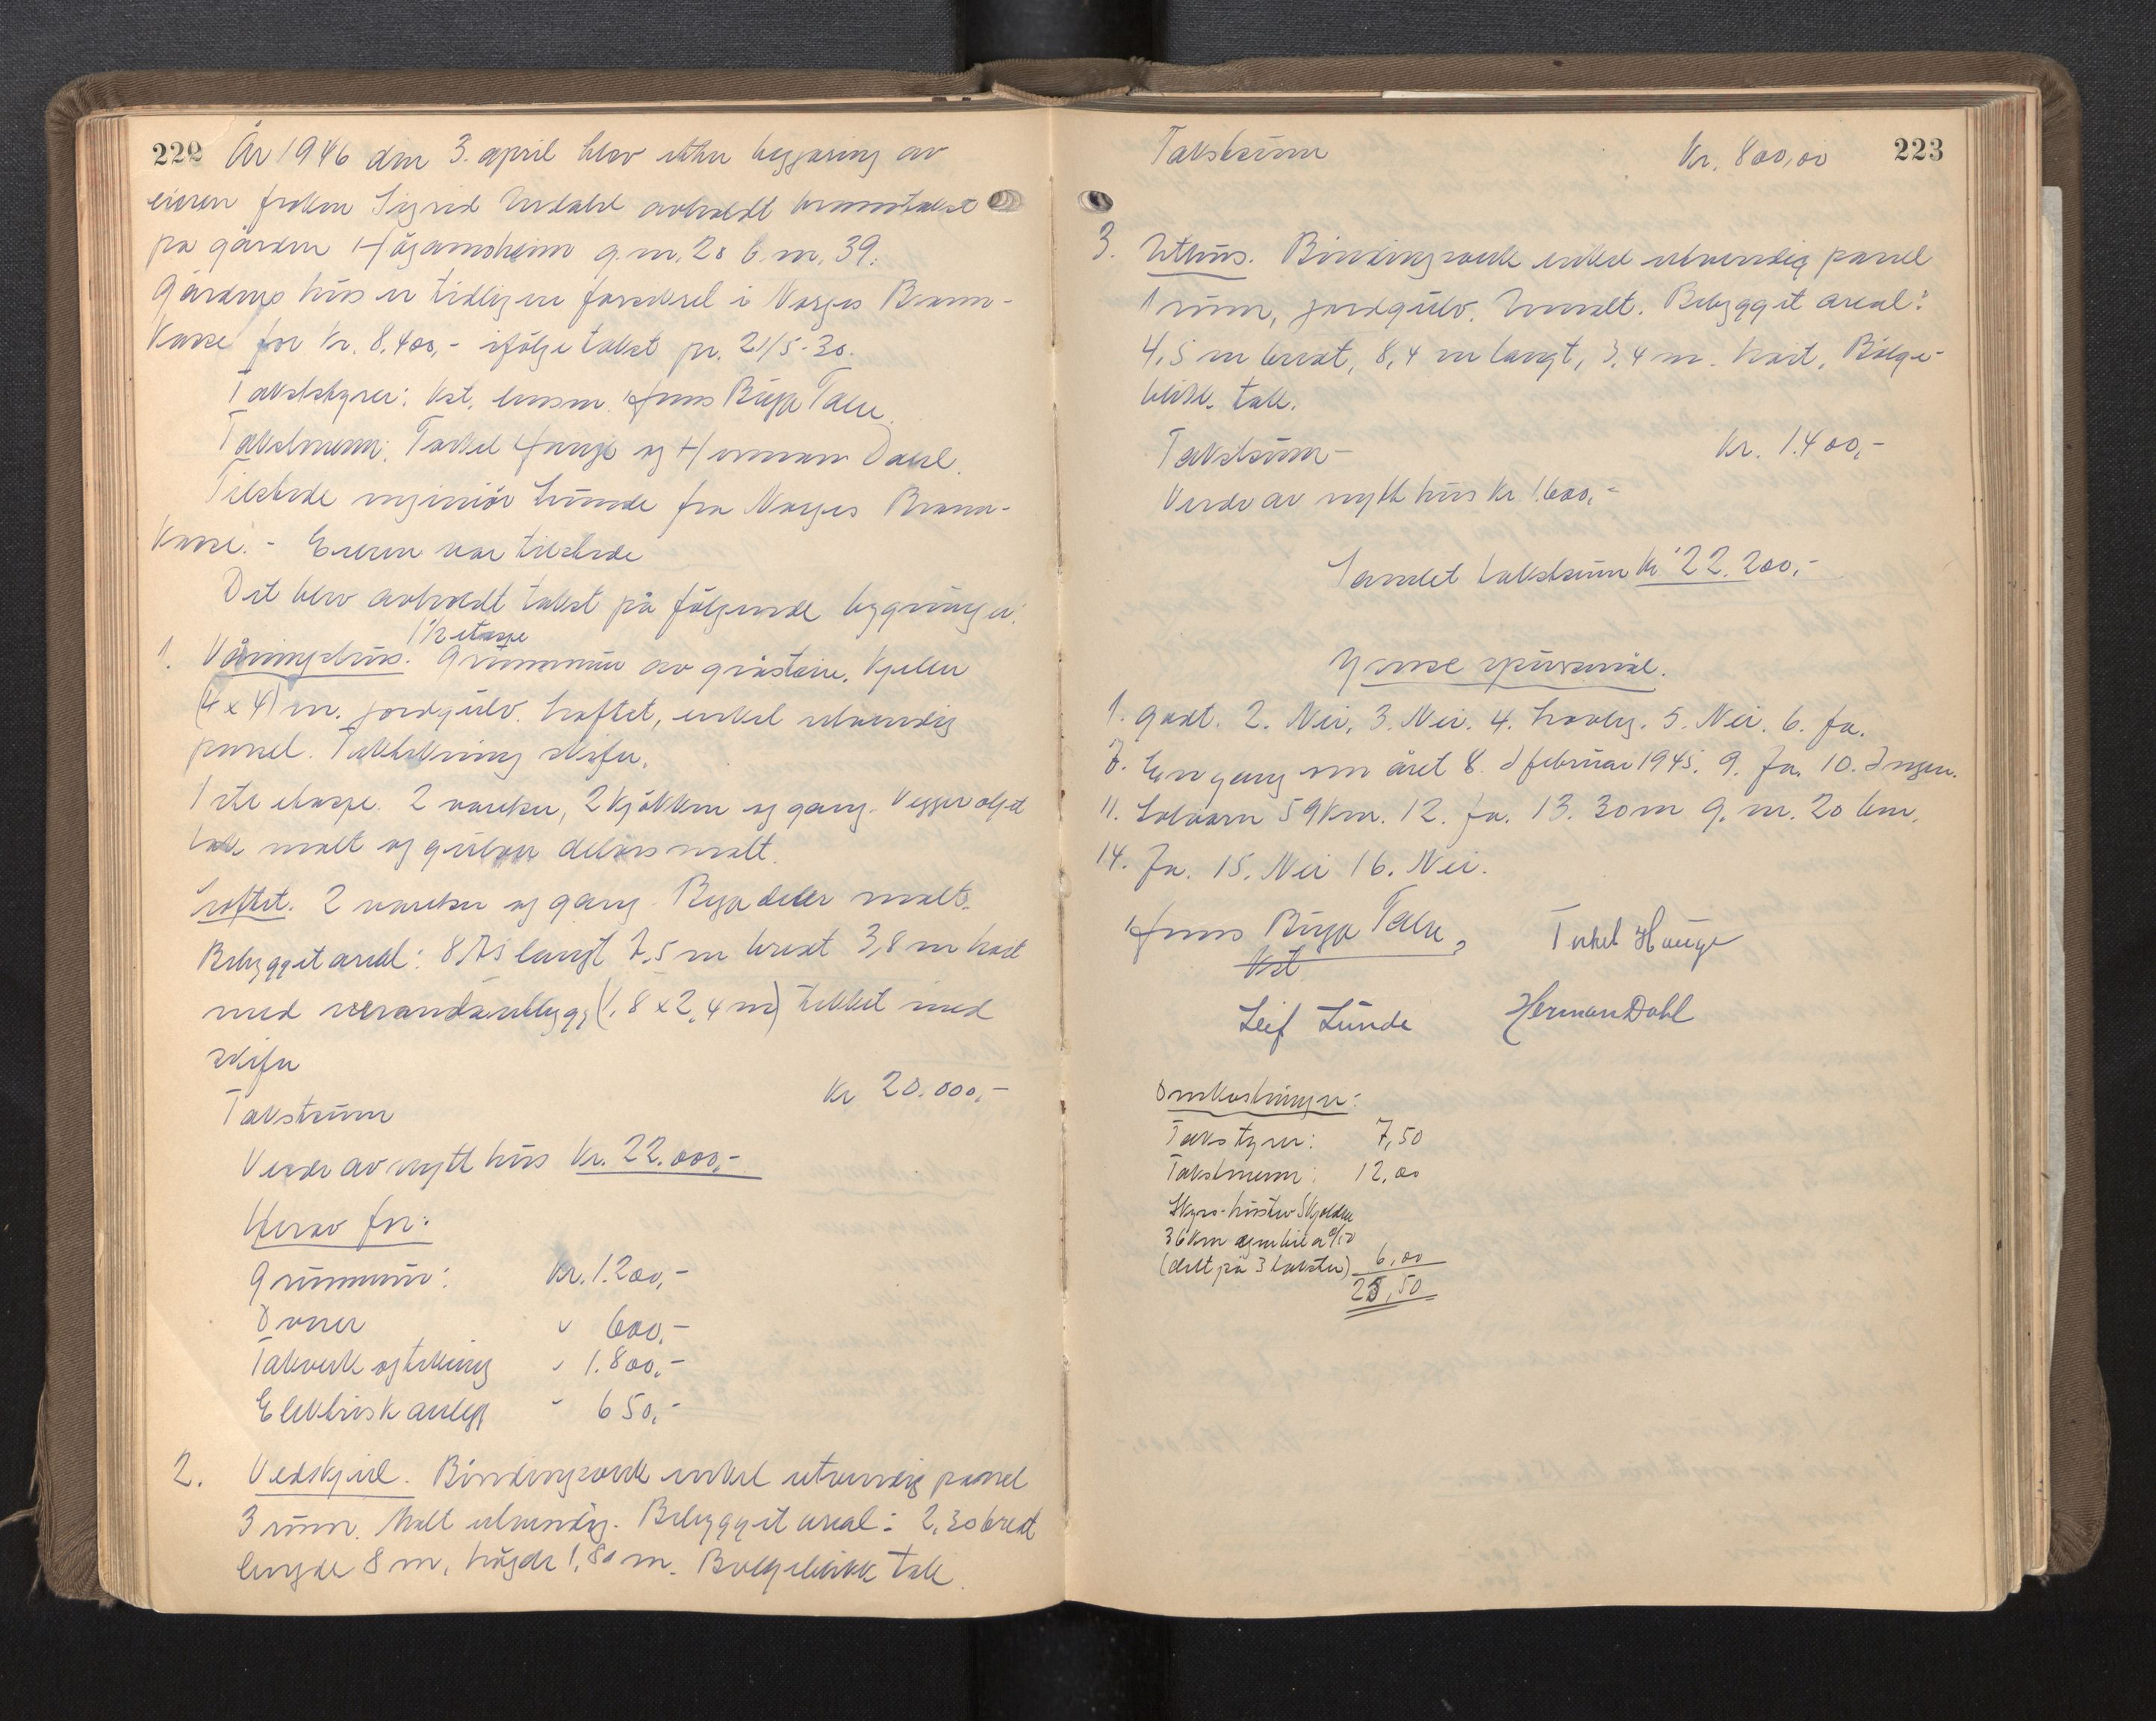 222 År 1946 den 3. april blev etter begjæring av
eieren frøken Sigrid Urdahl avholdt branntakst
på gården Høgamoheim g.nr. 20 b.nr. 39.
Gårdens hus er tidligere forsikret i Norges Brann-
kasse for Kr. 8.400,- ifølge takst pr. 21/5-30.
Takststyrer: kst. lensm. Jens Bugge
Takstmenn: Torkel Hauge og Herman Dahl.
Tilstede ingeniör Lunde fra Norges Brann-
kasse. - Eieren var tilstede
Det blev avholdt takst på följende bygninger:
1 1/2 etasje
1. Våningshus. Grunnmur av gråstein. Kjeller
(4 x 4) m. jordgulv. Loftet, enkel utvendig
panel. Taktekning skifer.
1ste etasje. 2 værelser, 2 kjøkken og gang. Vegger oljet
tak malt og gulver delvis malt.
Loftet. 2 værelser og gang. Begge deler malt.
Bebygget areal: 8,75 langt 7,5 m bredt 3,8 m høit
med verandautbygg (1,8 x 2,4 m) tekket med
skifer
Takstsum Kr 20.000,-
Verdi av nytt hus Kr. 22.000,-
Herav for:
Grunnmur: Kr. 1.200,-
Ovner " 600,-
Takverk og tekning " 1.800,-
Elektrisk anlegg " 650,-
2. Vedskjul. Bindingsverk enkel utvendig panel
3 rum. Malt utvendig. Bebygget areal: 2,30 bredt
lengde 8 m, høgde 1,80 m. Bølgeblikk tak.
Takstsum Kr. 800,00 223
3. Uthus. Bindingsverk enkel utvendig panel
1 rum, jordgulv. Umalt. Bebygget areal:
4,5 m bredt, 8,4 m langt, 3,4 m. høit. Bölge-
blikk tak.
Takstsum Kr. 1.400,-
Verdi av nytt hus Kr. 1.600,-
Samlet takstsum Kr 22.200,-
Ymse spursmål.
1. Godt. 2. Nei. 3. Nei. 4. 5. Nei. 6. Ja.
7. Een gang om året 8. I februar 1945. 9. Ja. 10. Ingen.
11. Solvorn 59 km. 12. Ja. 13. 30 m g. nr. 20 bnr.
14. Ja. 15. Nei 16. Nei.
Jens Bugge Torkel Hauge
Kst
Leif Lunde Herman Dahl
Omkostninger:
Takstyrer: 7,50
Takstmenn: 12,00
Skyss - Skjolden
36 km egen bil a 0/50
(delt på 3 takster) 6,00
25,50